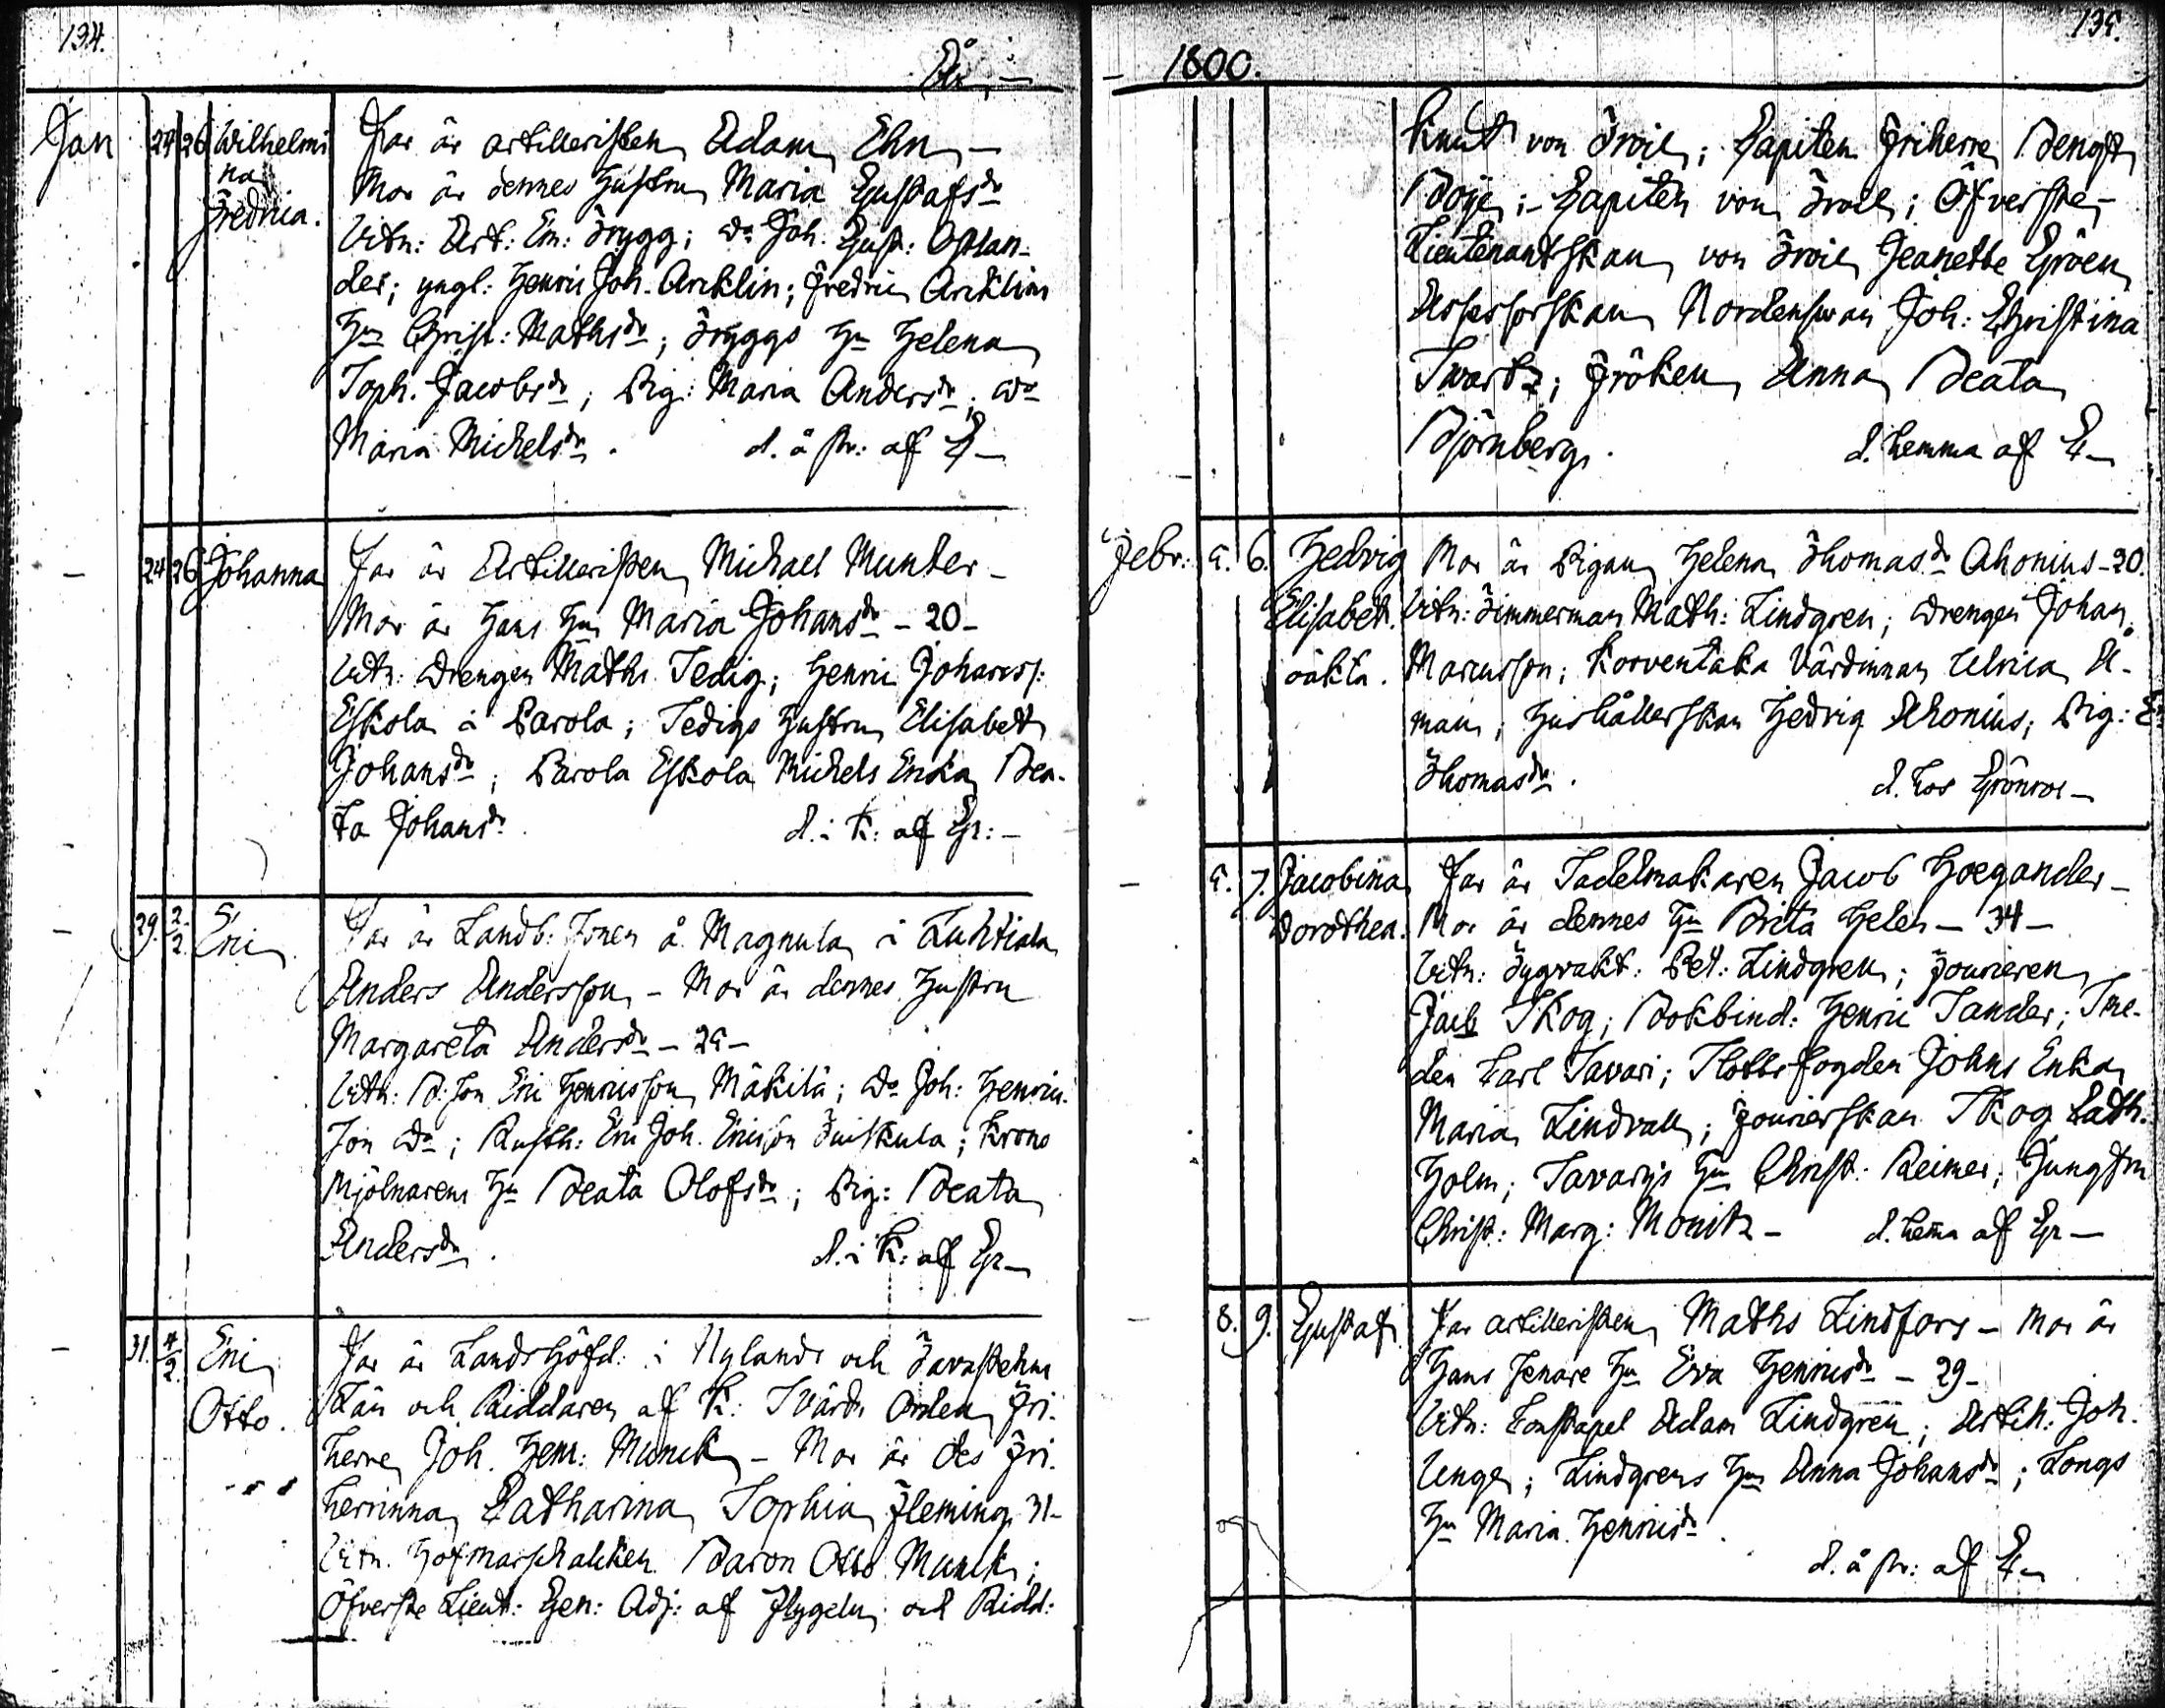 134.
År —
Jan 24 26 Wilhelmi
na
Fredrica.
Far är artilleristen Adam Ehn —
Mor är dennes hustru Maria Gustafsdr
Vitn: Art: Em: Trygg; do Joh. Gust: Oplan-
der; yngl: Henric Joh. Arcklin; Fredric Arcklins
Hu Christ: Mathsdr; Tryggs Hu Helena
Soph. Jacobsdr; Pig: Maria Andersdr; do
Maria Michelsdr. d. å st: af G —
24 26 Johanna
Far är Artilleristen Michael Munter —
Mor är hans Hu Maria Johansdr — 20 —
Vitn: drengen Maths Sedig; Henric Johanss:
Eskola i Parola; Sedigs hustru Elisabeth
Johansdr; Parola Eskola Michels Enka Bea-
ta Johansdr. d. i K: af Gr: —
29. 2/2. Eric
Far är Landb: Sonen å Magnula i Luhtiala
Anders Andersson — Mor är dennes hustru
Margareta Andersdr — 25 —
Vitn: B: Son Eric Henricsson Mäkilä; do Joh: Henric
Son do; Rusth: Eric Joh. Ericson Suiskula; Krono
Mjölnarens Hu Beata Olofsdr; Pig: Beata
Andersdr. d. i K: af Gr —
31. 4/2. Eric
Otto.
Far är Landshöfd: i Nylands och Tavastehus
Län och Riddaren af K: Svärds Orden Fri-
herre Joh. Henr: Munck — Mor är des Fri-
herrinna Catharina Sophia Fleming 31 —
Vitn. Hofmarschalken Baron Otto Munck;
Öfverste Lieut: Gen: Adj: af Flygeln och Ridd:
135.
— 1800.
Knut von Troil; Capiten Friherre Bengt
Böije; Capiten von Troil; Öfverste-
Lieutenantskan von Troil Jeanette Gröen
Assessorskan Nordenswan Joh: Christina
Swartz; Fröken Anna Beata
Björnberg. d. hemma af G —
Febr: 5. 6. Hedvig
Elisabeth.
oäkta.
Mor är Pigan Helena Thomasdr Ahonius — 20.
Vitn: Timmerman Math: Lindgren; drengen Johan
Marcusson; Korventaka Värdinnan Ulrica Å-
man; hushållerskan Hedvig Ahonius; Pig:
Thomasdr. d. hos Grönroos —
5. 7. Jacobina
Dorothea.
Far är Sadelmakaren Jacob Hoegander —
Mor är dennes Hu Brita Helen — 34 —
Vitn: Tygvakt: Pet: Lindgren; Fourieren
Jacb Skog; Bokbind: Henric Sander; Sme-
den Carl Savari; Slottsfogden Johns Enka
Maria Lindvall; Fourierskan Skog Cath.
Holm; Savarys Hu Christ: Reimer; Jungfru
Christ: Marg: Monitz — d. hema af Gr —
8. 9. Gustaf
Far artilleristen Maths Lindfors — Mor är
hans senare Hu Eva Henricsdr — 29 —
Vitn: Constapel Adam Lindgren; Artill: Joh.
Unge; Lindgrens Hu Anna Johansdr; Longs
Hu Maria Henricsdr.
d. å st: af G —